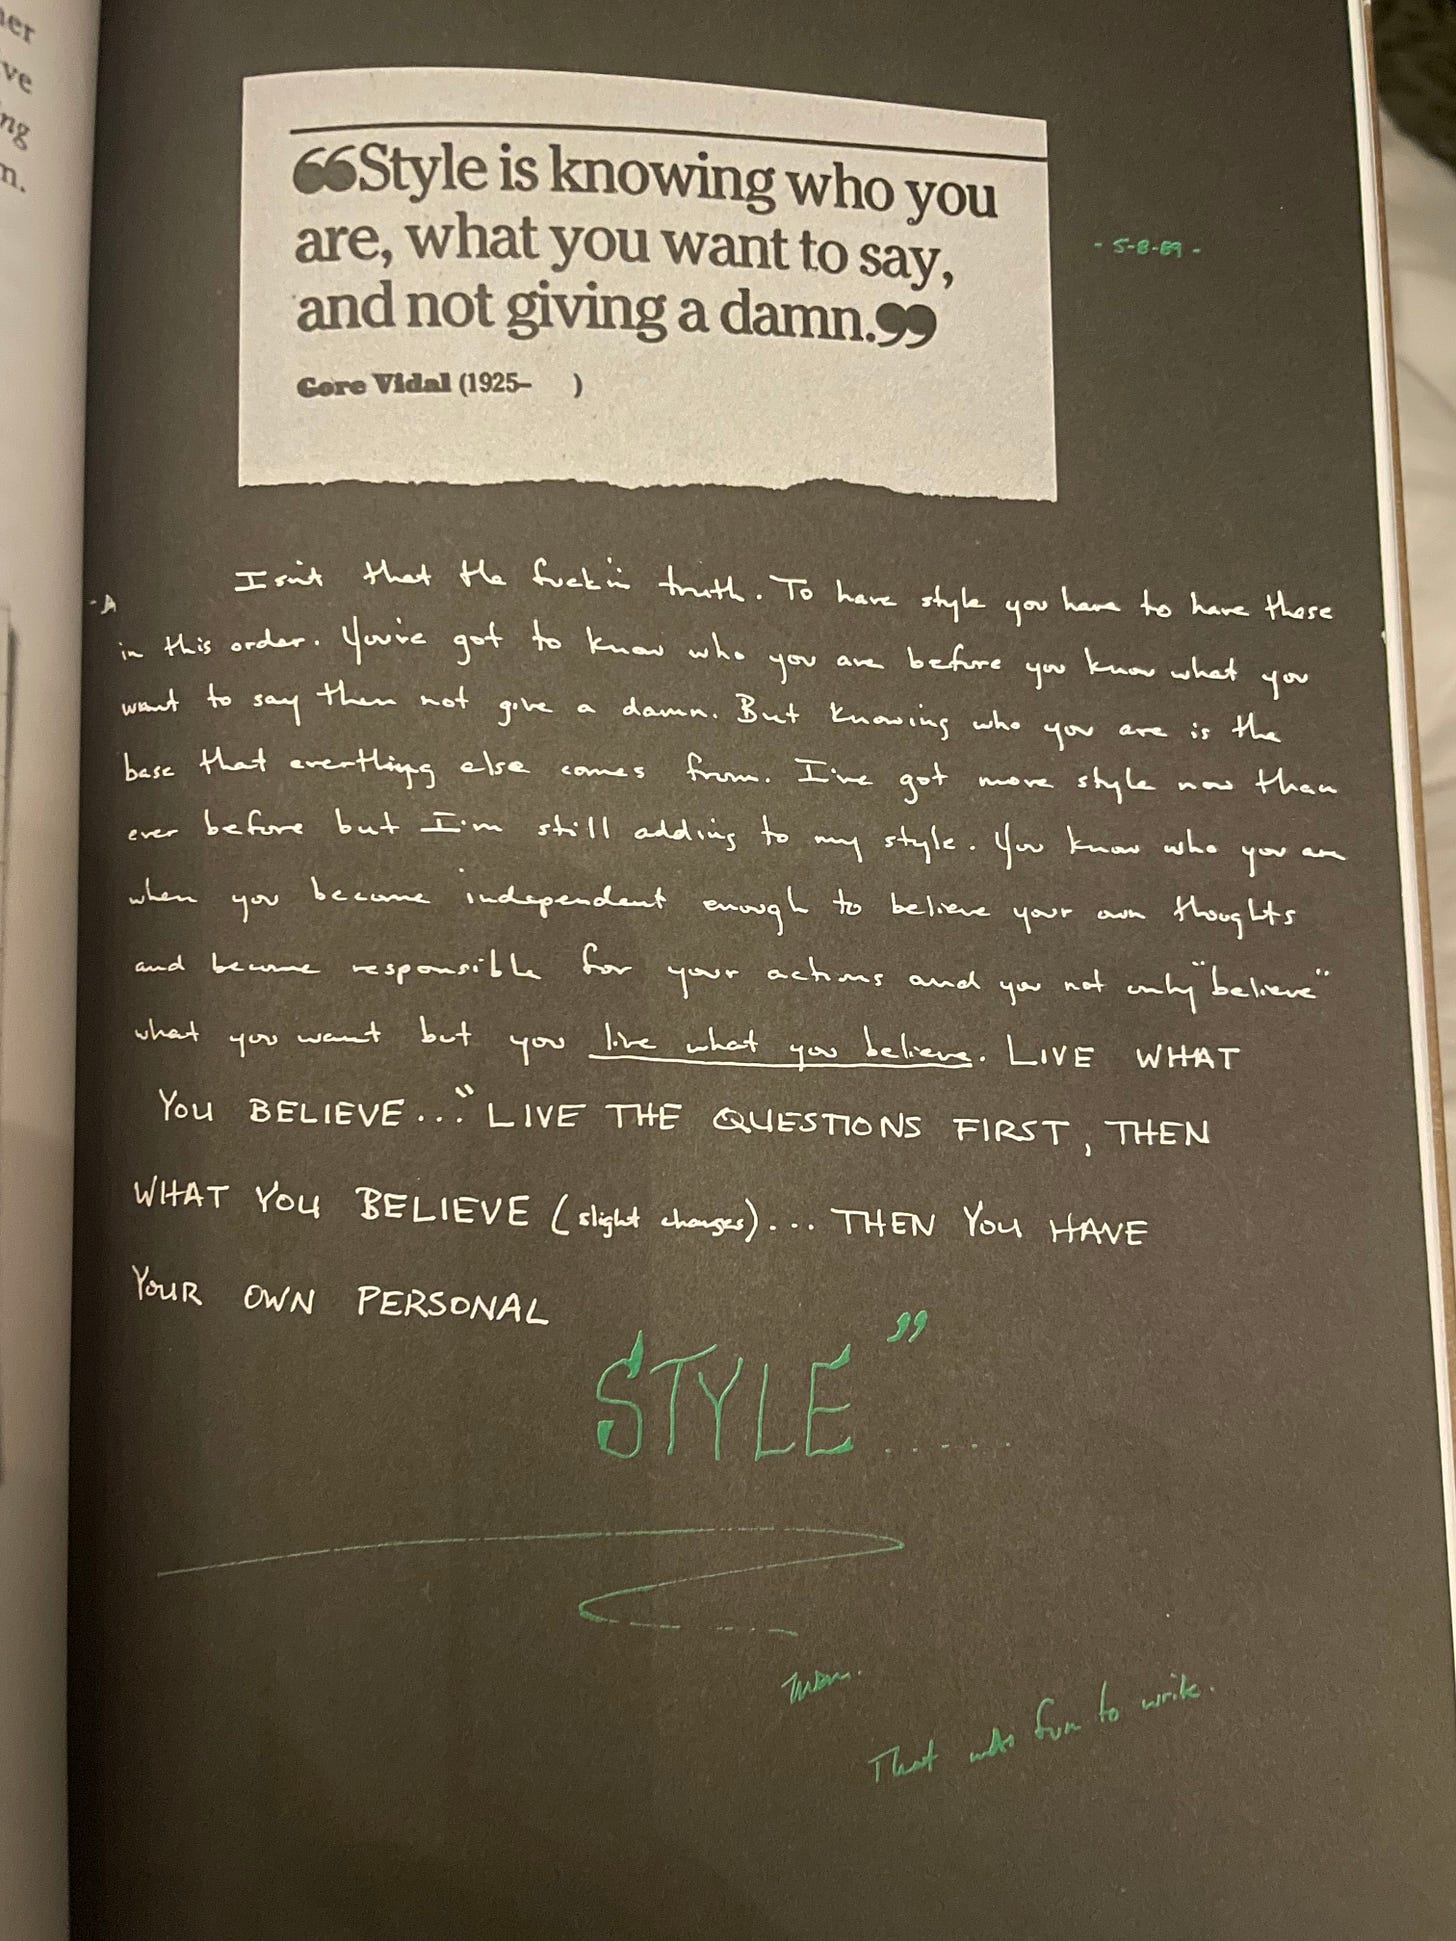 er
ve
ng
n.
“Style is knowing who you
are, what you want to say,
and not giving a damn.”
Gore Vidal (1925– )
- 5-8-89 -
Isn't that the fuckin truth. To have style you have to have these
-A
in this order. You've got to know who you are before you know what you
want to say then not give a damn. But knowing who you are is the
base that everthing else comes from. I've got more style now than
ever before but I'm still adding to my style. You know who you are
when you become independent enough to believe your own thoughts
and become responsible for your actions and you not only "believe"
what you want but you live what you believe. LIVE WHAT
YOU BELIEVE... "LIVE THE QUESTIONS FIRST, THEN
WHAT YOU BELIEVE (slight changes)... THEN YOU HAVE
YOUR OWN PERSONAL
STYLE" ......
That was fun to write.